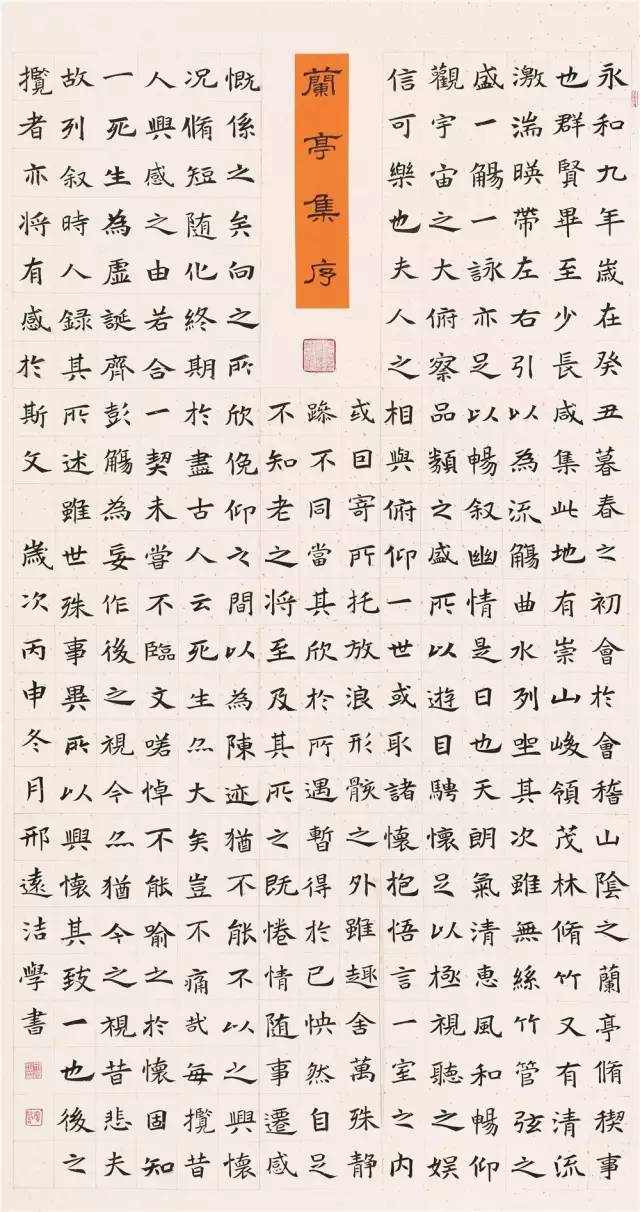 永和九年歲在癸丑暮春之初會於會稽山陰之蘭亭脩禊事
也群賢畢至少長咸集此地有崇山峻領茂林脩竹又有清流
激湍暎帶左右引以為流觴曲水列坐其次雖無絲竹管弦之
盛一觴一詠亦足以暢叙幽情是日也天朗氣清惠風和暢仰
觀宇宙之大俯察品類之盛所以遊目騁懷足以極視聽之娛
信可樂也夫人之相與俯仰一世或取諸懷抱悟言一室之內
蘭亭集序
或曰寄所托放浪形骸之外雖趣舍萬殊靜
躁不同當其欣於所遇暫得於己怏然自足
不知老之將至及其所之既惓情随事遷感
慨係之矣向之所欣俛仰之間以為陳迹猶不能不以之興懷
况脩短随化終期於盡古人云死生亦大矣豈不痛哉每攬昔
人興感之由若合一契未嘗不臨文嗟悼不能喻之於懷固知
一死生為虛誕齊彭觴為妄作後之視今亦猶今之視昔悲夫
故列叙時人録其所述雖世殊事異所以興懷其致一也後之
攬者亦将有感於斯文 歲次丙申冬月邢遠洁學書